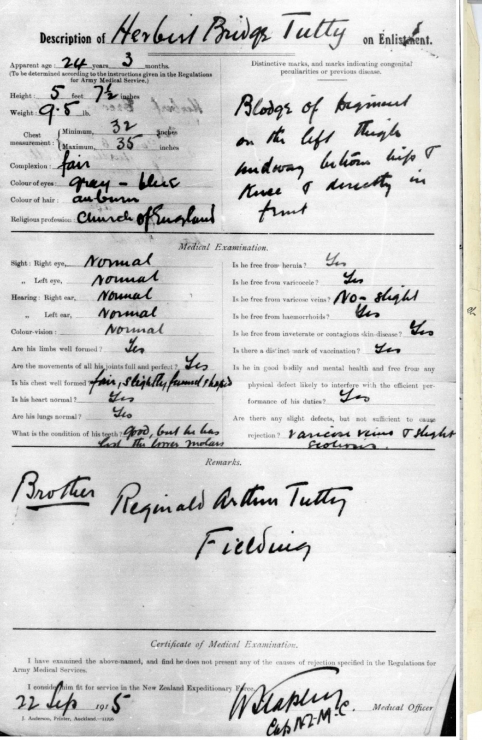 Description of Herbert Bridge Tutty on Enlistment.
Apparent age: 24 years 3 months.
(To be determined according to the instructions given in the Regulations for Army Medical Service.)
Height: 5 feet 7½ inches
Weight: 9.5 lb.
Chest measurement: Minimum, 32 inches
Maximum, 35 inches
Complexion: fair
Colour of eyes: gray - blue
Colour of hair: auburn
Religious profession: Church of England
Distinctive marks, and marks indicating congenital peculiarities or previous disease.
Blodge of pigment
on the left thigh
midway between hip &
knee & directly in
front
Medical Examination.
Sight: Right eye, Normal
„ Left eye, Normal
Hearing: Right ear, Normal
„ Left ear, Normal
Colour-vision: Normal
Are his limbs well formed? Yes
Are the movements of all his joints full and perfect? Yes
Is his chest well formed? fair, slightly, funnel shaped
Is his heart normal? Yes
Are his lungs normal? Yes
What is the condition of his teeth? Good, but he has
lost the lower molars
Is he free from hernia? Yes
Is he free from varicocele? Yes
Is he free from varicose veins? No - slight
Is he free from haemorrhoids? Yes
Is he free from inveterate or contagious skin-disease? Yes
Is there a distinct mark of vaccination? Yes
Is he in good bodily and mental health and free from any
physical defect likely to interfere with the efficient per-
formance of his duties? Yes
Are there any slight defects, but not sufficient to cause
rejection? Varicose veins & slight
Remarks.
Brother Reginald Arthur Tutty
Fielding
Certificate of Medical Examination.
I have examined the above-named, and find he does not present any of the causes of rejection specified in the Regulations for
Army Medical Services.
I consider him fit for service in the New Zealand Expeditionary Force.
22 Sep 1915
Capt N.Z.M.C. Medical Officer
J. Anderson, Printer, Auckland